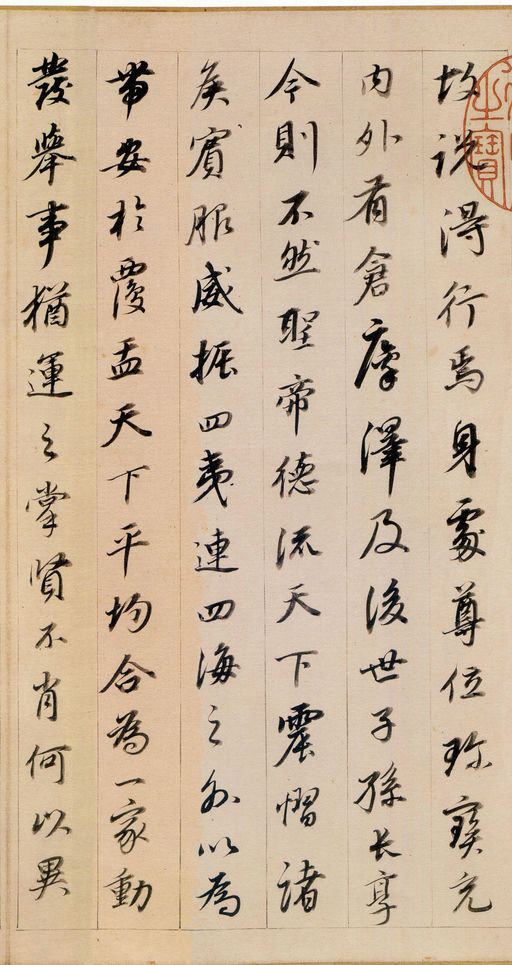 故説得行焉身處尊位珎寳充
内外有倉廩澤及後世子孫長享
今則不然聖帝德流天下震慴諸
矦賓服威振四夷連四海之外以為
帶安於覆盂天下平均合為一家動
發舉事猶運之掌賢不肖何以異
之寶